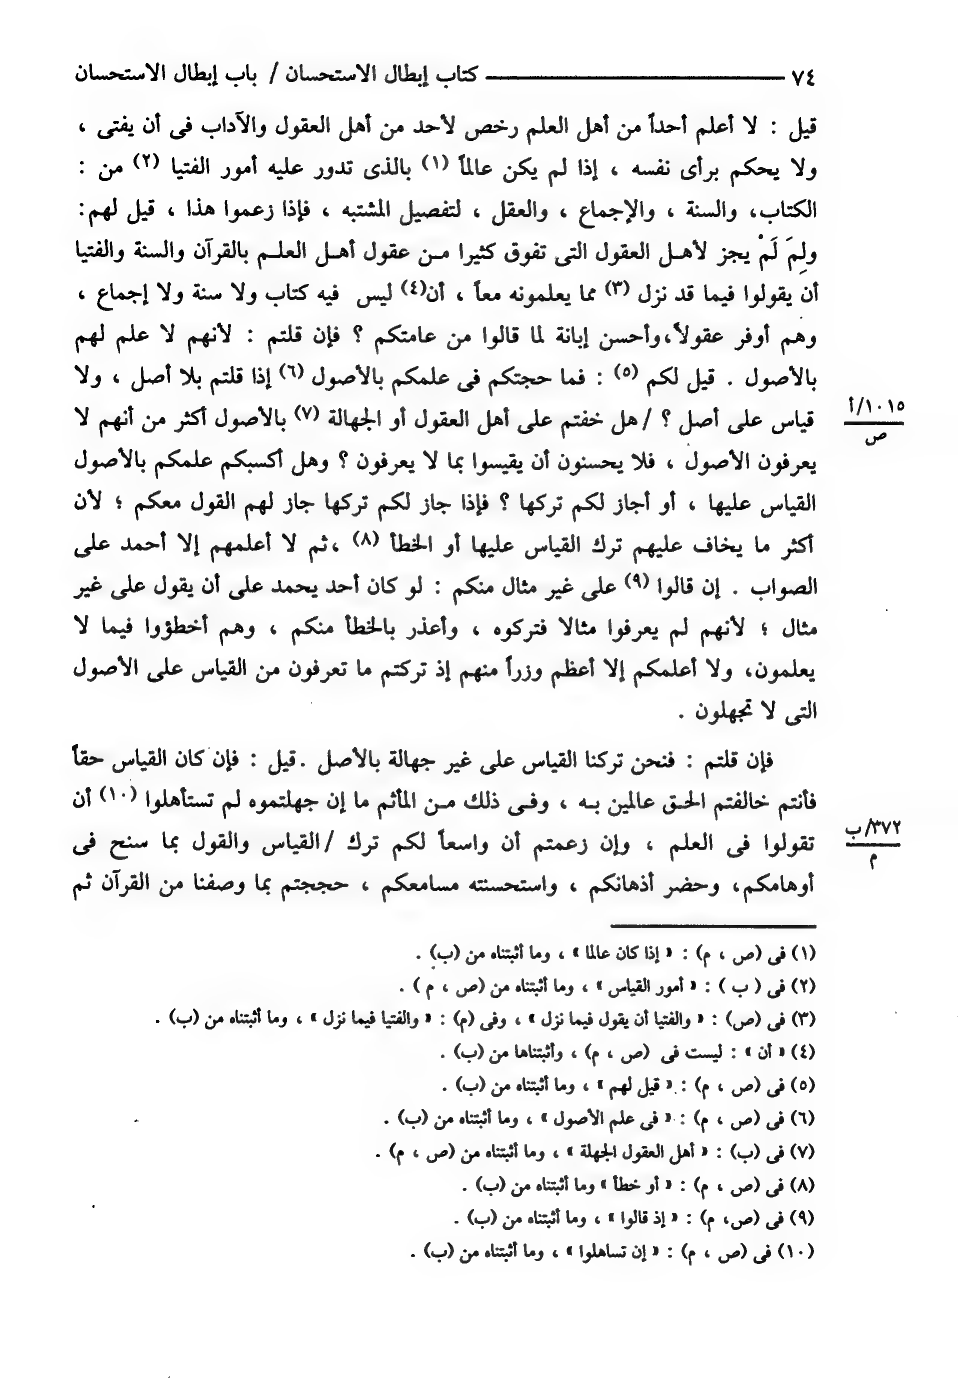 ٧٤ ــــــــــــــــــــ كتاب إبطال الاستحسان / باب إبطال الاستحسان
قيل : لا أعلم أحداً من أهل العلم رخص لأحد من أهل العقول والآداب فى أن يفتى ،
ولا يحكم برأى نفسه ، إذا لم يكن عالمًا (١) بالذى تدور عليه أمور الفتيا (٢) من :
الكتاب، والسنة ، والإجماع ، والعقل ، لتفصيل المشتبه ، فإذا زعموا هذا ، قيل لهم:
ولِمَ لَمْ يجز لأهـل العقول التى تفوق كثيرا مـن عقول أهـل العلـم بالقرآن والسنة والفتيا
أن يقولوا فيما قد نزل (٣) مما يعلمونه معاً ، أن(٤) ليس فيه كتاب ولا سنة ولا إجماع ،
وهم أوفر عقولاً،وأحسن إبانة لما قالوا من عامتكم ؟ فإن قلتم : لأنهم لا علم لهم
بالأصول . قيل لكم (٥) : فما حجتكم فى علمكم بالأصول (٦) إذا قلتم بلا أصل ، ولا
قياس على أصل ؟ /هل خفتم على أهل العقول أو الجهالة (٧) بالأصول أكثر من أنهم لا
١٠١٥/أ
ص
يعرفون الأصول ، فلا يحسنون أن يقيسوا بما لا يعرفون ؟ وهل أكسبكم علمكم بالأصول
القياس عليها ، أو أجاز لكم تركها ؟ فإذا جاز لكم تركها جاز لهم القول معكم ؛ لأن
أكثر ما يخاف عليهم ترك القياس عليها أو الخطأ (٨) ،ثم لا أعلمهم إلا أحمد على
الصواب . إن قالوا (٩) على غير مثال منكم : لو كان أحد يحمد على أن يقول على غير
مثال ؛ لأنهم لم يعرفوا مثالا فتركوه ، وأعذر بالخطأ منكم ، وهم أخطؤوا فيما لا
يعلمون، ولا أعلمكم إلا أعظم وزراً منهم إذ تركتم ما تعرفون من القياس على الأصول
التى لا تجهلون .
فإن قلتم : فنحن تركنا القياس على غير جهالة بالأصل .قيل : فإن كان القياس حقاً
فأنتم خالفتم الحـق عالمين بـه ، وفـى ذلك مـن المأثم ما إن جهلتموه لم تستأهلوا (١٠) أن
تقولوا فى العلم ، وإن زعمتم أن واسعاً لكم ترك /القياس والقول بما سنح فى
٣٧٢/ب
م
أوهامكم، وحضر أذهانكم ، واستحسنته مسامعكم ، حججتم بما وصفنا من القرآن ثم
(١) فى (ص ، م) : « إذا كان عالما » ، وما أثبتناه من (ب) .
(٢) فى ( ب ) : « أمور القياس » ، وما أثبتناه من (ص ، م ) .
(٣) فى (ص) : « والفتيا أن يقول فيما نزل » ، وفى (م) : « والفتيا فيما نزل » ، وما أثبتناه من (ب) .
(٤) « أن » : ليست فى (ص ، م) ، وأثبتناها من (ب) .
(٥) فى (ص ، م) : « قيل لهم » ، وما أثبتناه من (ب) .
(٦) فى (ص ، م) : « فى علم الأصول » ، وما أثبتناه من (ب) .
(٧) فى (ب) : « أهل العقول الجهلة » ، وما أثبتناه من (ص ، م) .
(٨) فى (ص ، م) : « أو خطأ » وما أثبتناه من (ب) .
(٩) فى (ص، م) : « إذ قالوا » ، وما أثبتناه من (ب) .
(١٠) فى (ص ، م) : « إن تساهلوا » ، وما أثبتناه من (ب) .